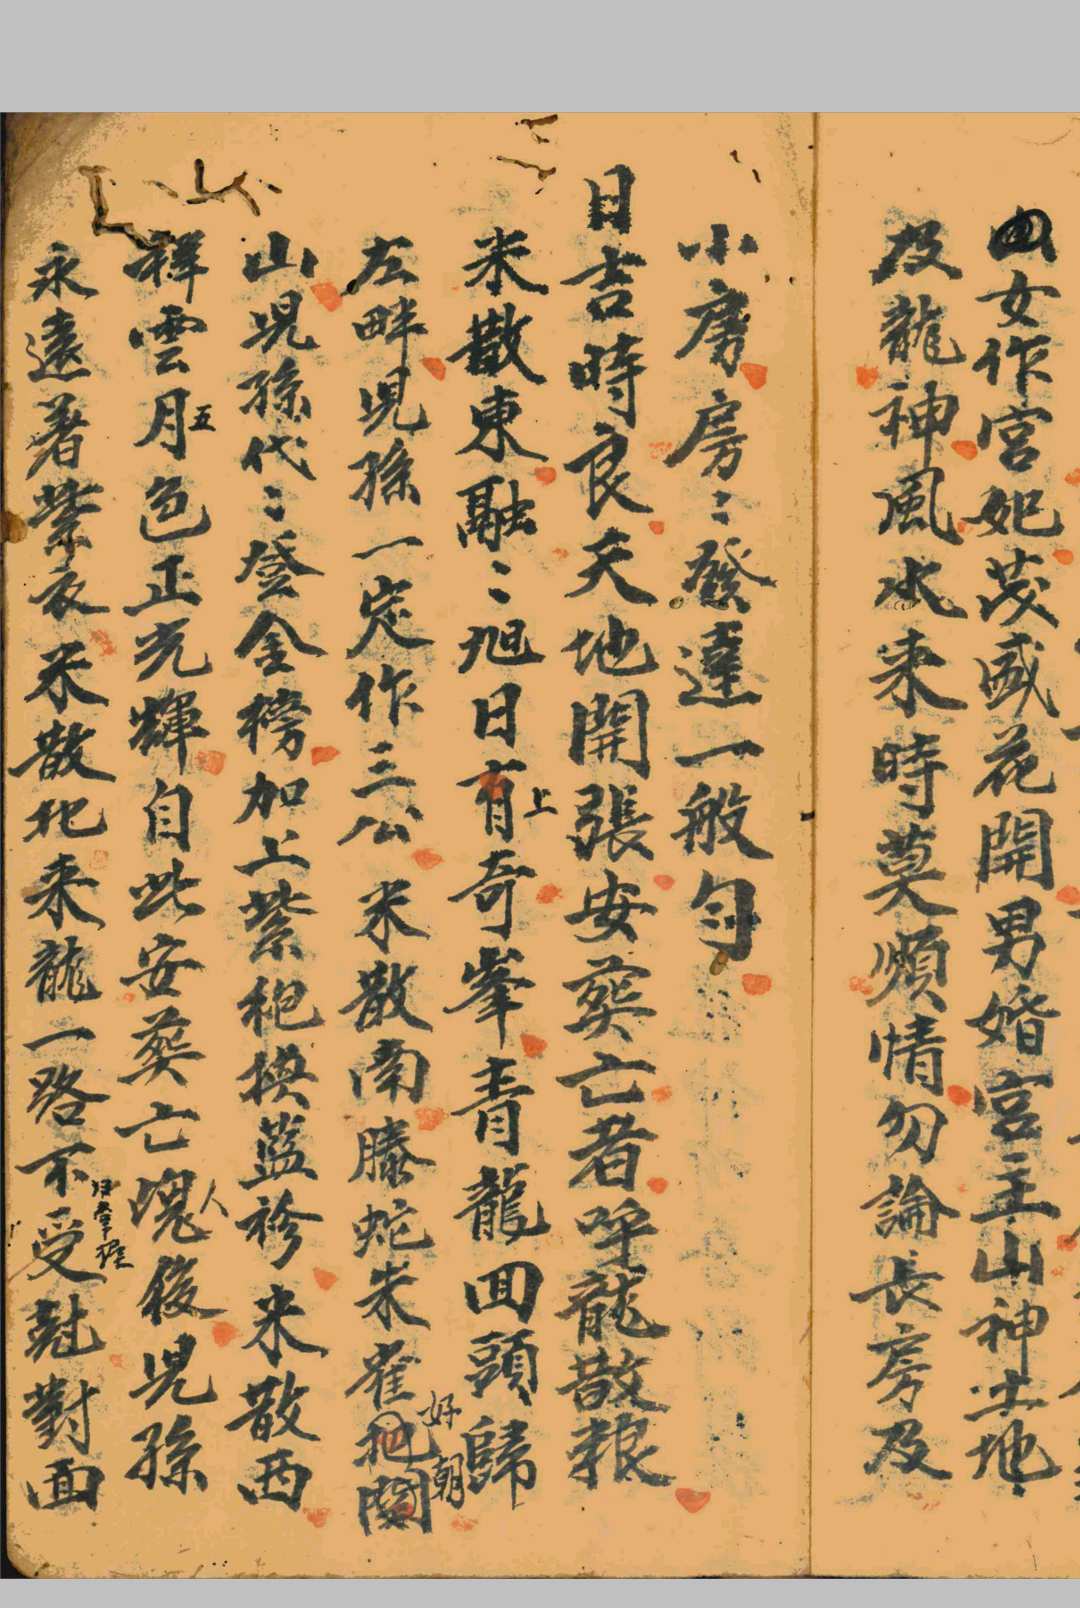 四女作宮妃茂盛花開男婚宮主山神土地
及龍神風水来時莫順情勿論長房及
小房房〻發達一般勻
日吉時良天地開張安葵亡者呼龍散粮
米散東融〻旭日有上奇峯青龍回頭歸
左畔児孫一定作三公 米散南螣蛇朱雀把関好朝
山児孫代〻登金榜加上紫袍换藍衫米散西
祥雲月五色正光輝自此安葵亡魂人後児孫
永遠著紫衣米散北来龍一路不受尅對面